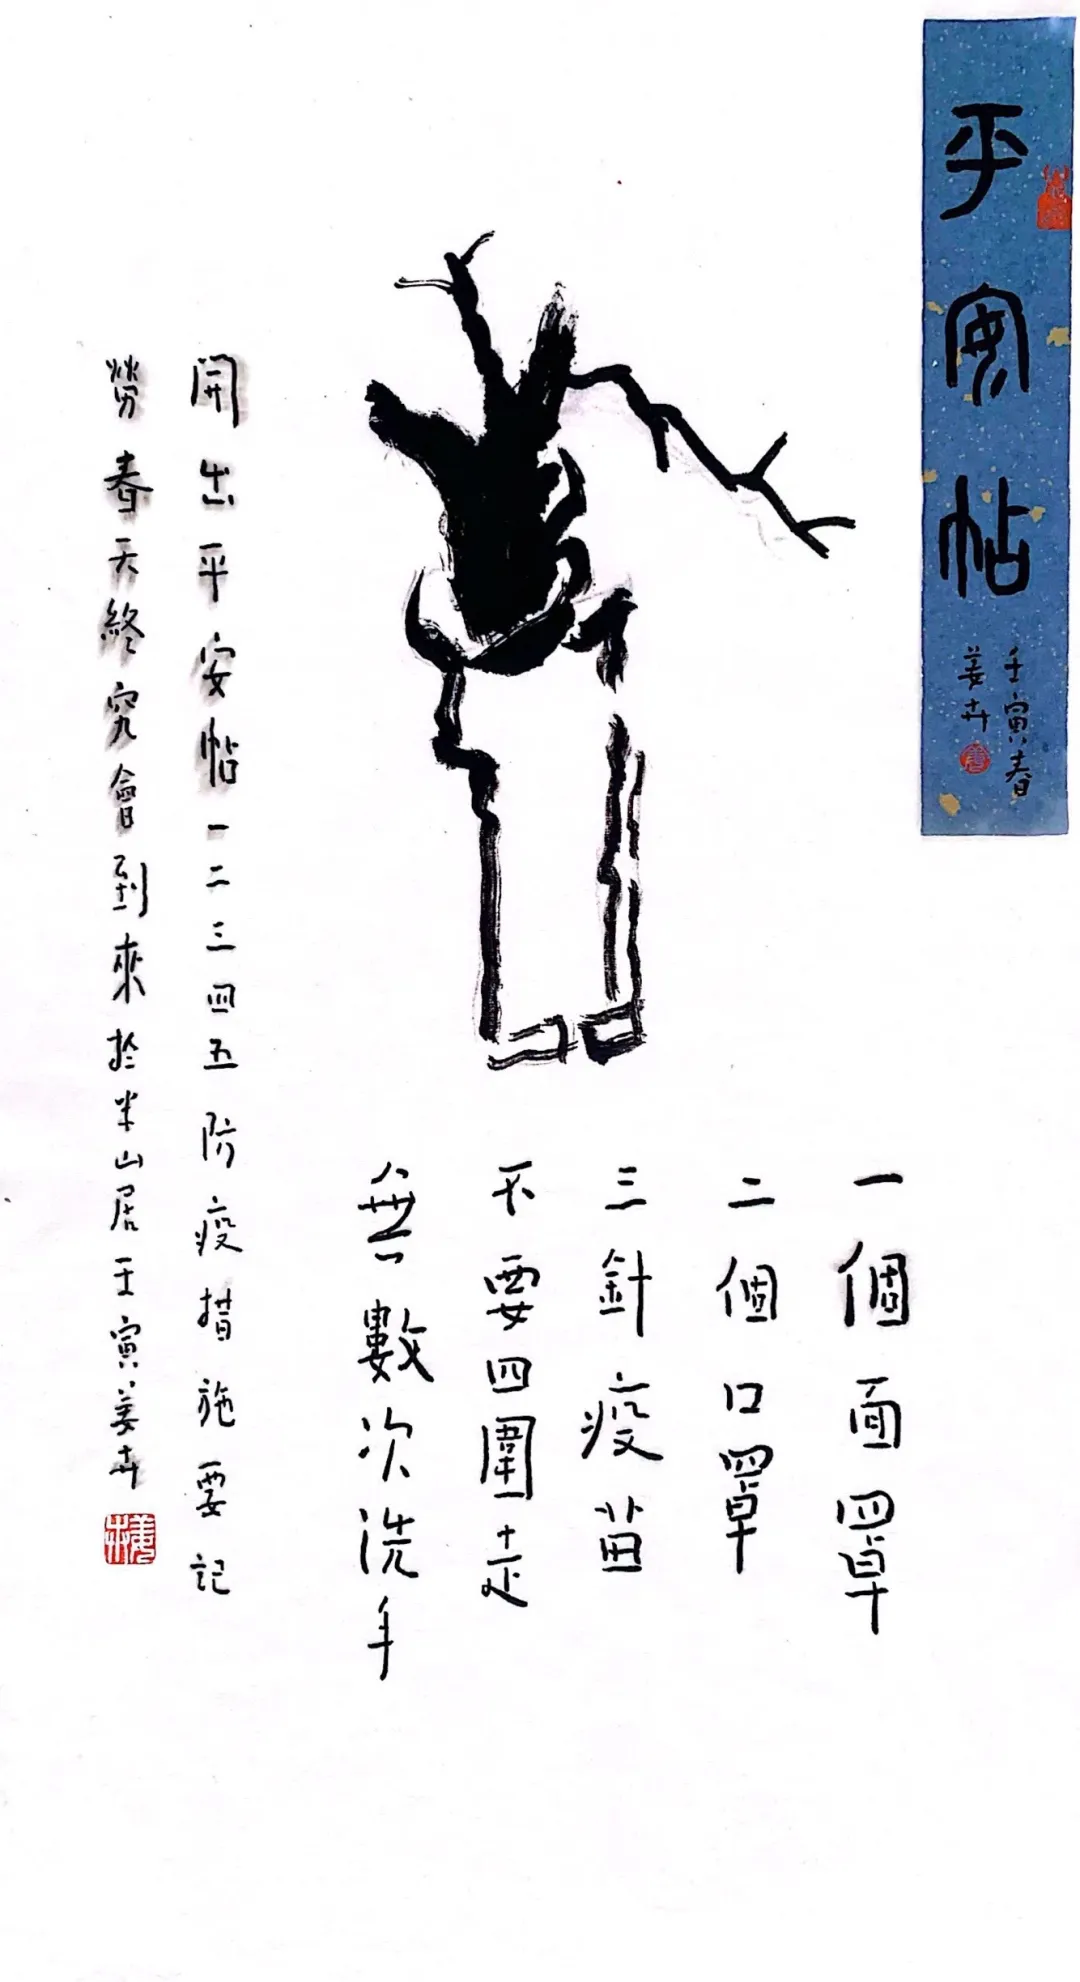 平安帖
壬寅春
姜卉
一個面罩
二個口罩
三針疫苗
不要四圍走
無數次洗手
開出平安帖一二三四五防疫措施要記
勞春天終究會到來於半山居壬寅姜卉